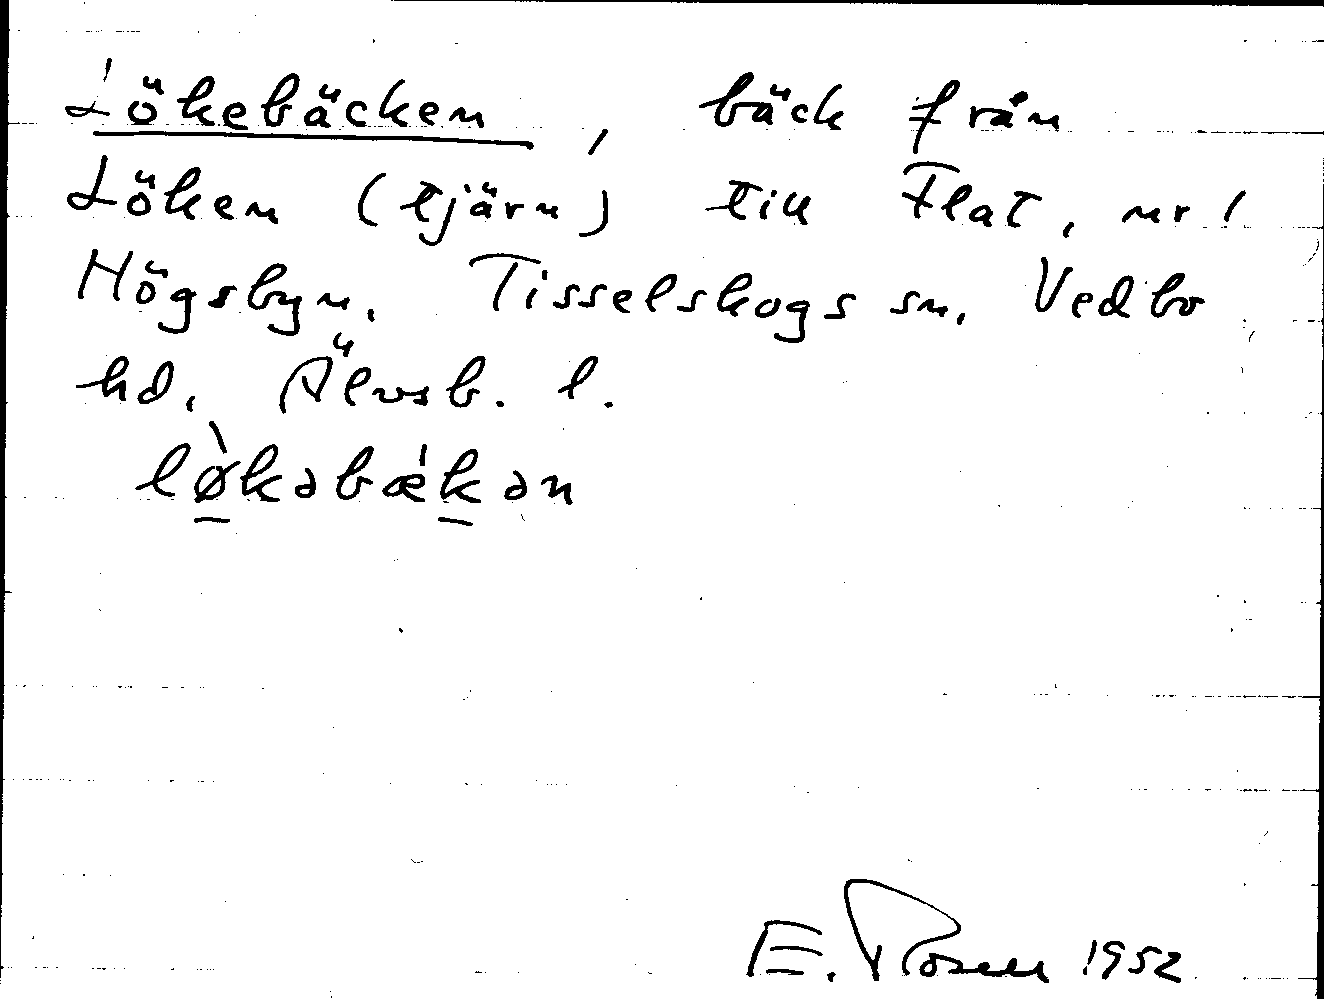 Lökebäcken, bäck från
Löken (tjärn) till Flat, nr 1
Högsbyn. Tisselskogs sn. Vedbo
hd. Älvsb. l.
lø̠̀kəbǽk̠ən
E. Rosell 1952